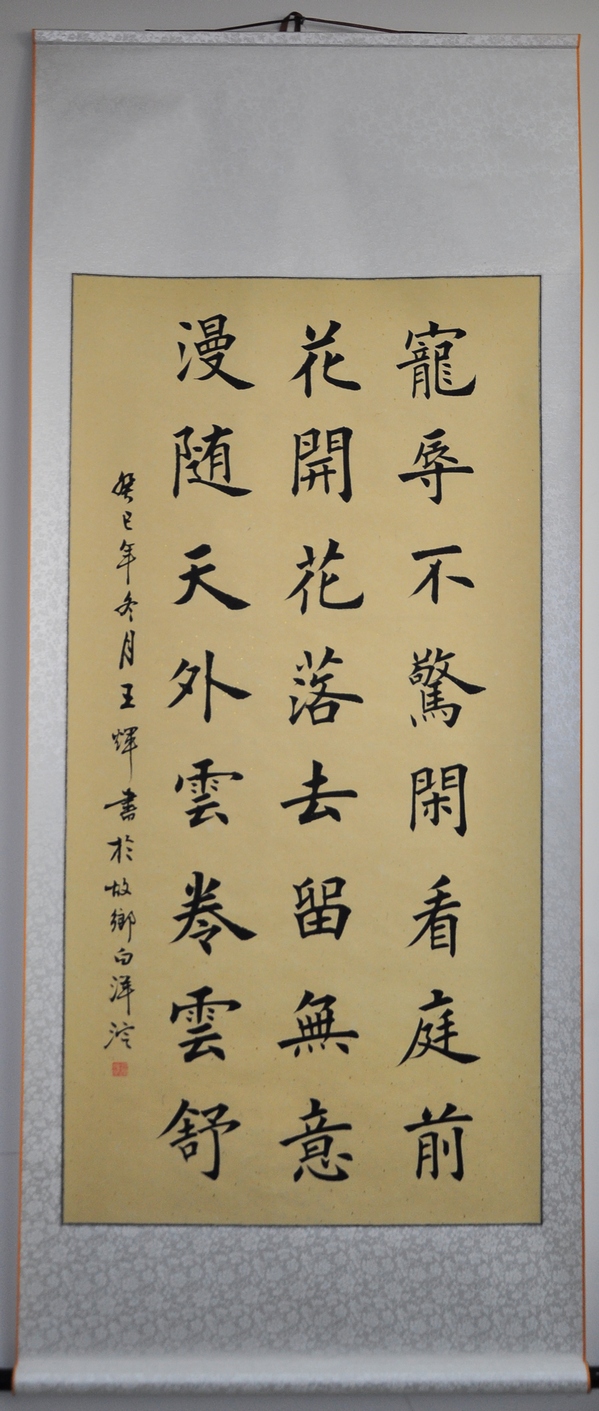 寵辱不驚閑看庭前
花開花落去留無意
漫随天外雲卷雲舒
癸巳年冬月王輝書於故鄉白洋淀